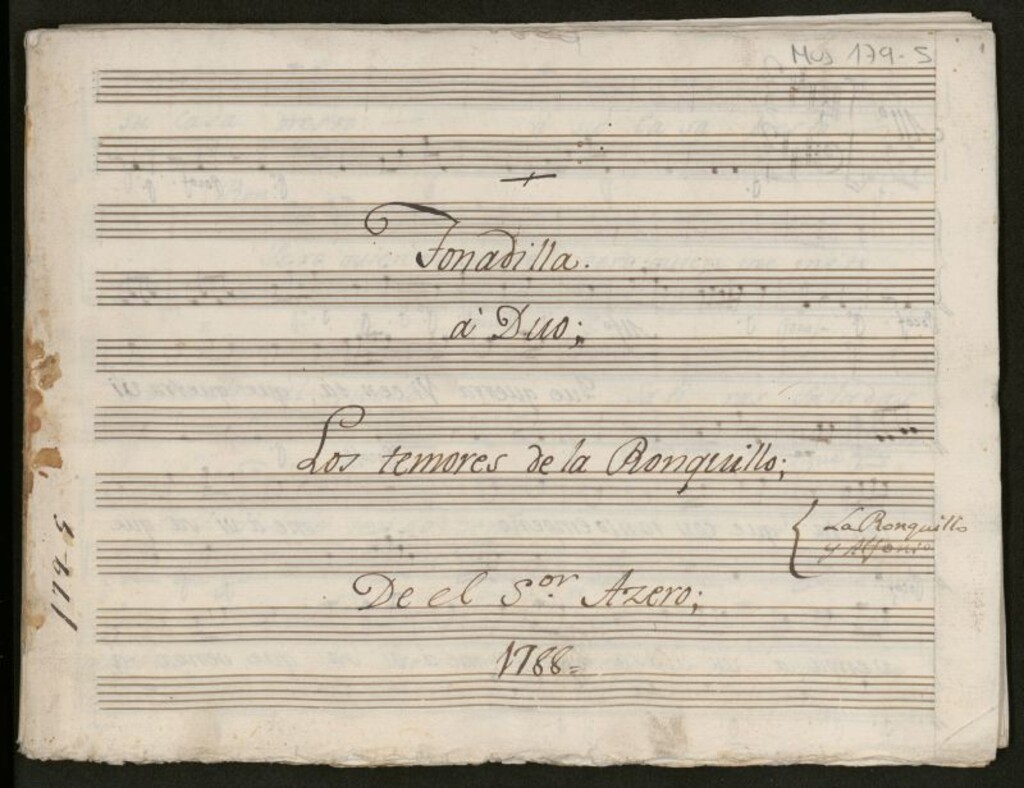 Mus 179-5
Tonadilla.
à Duo;
Los temores de la Ronquillo;
La Ronquillo
y Alfonso
De el S.or Azero;
1788=
179-5